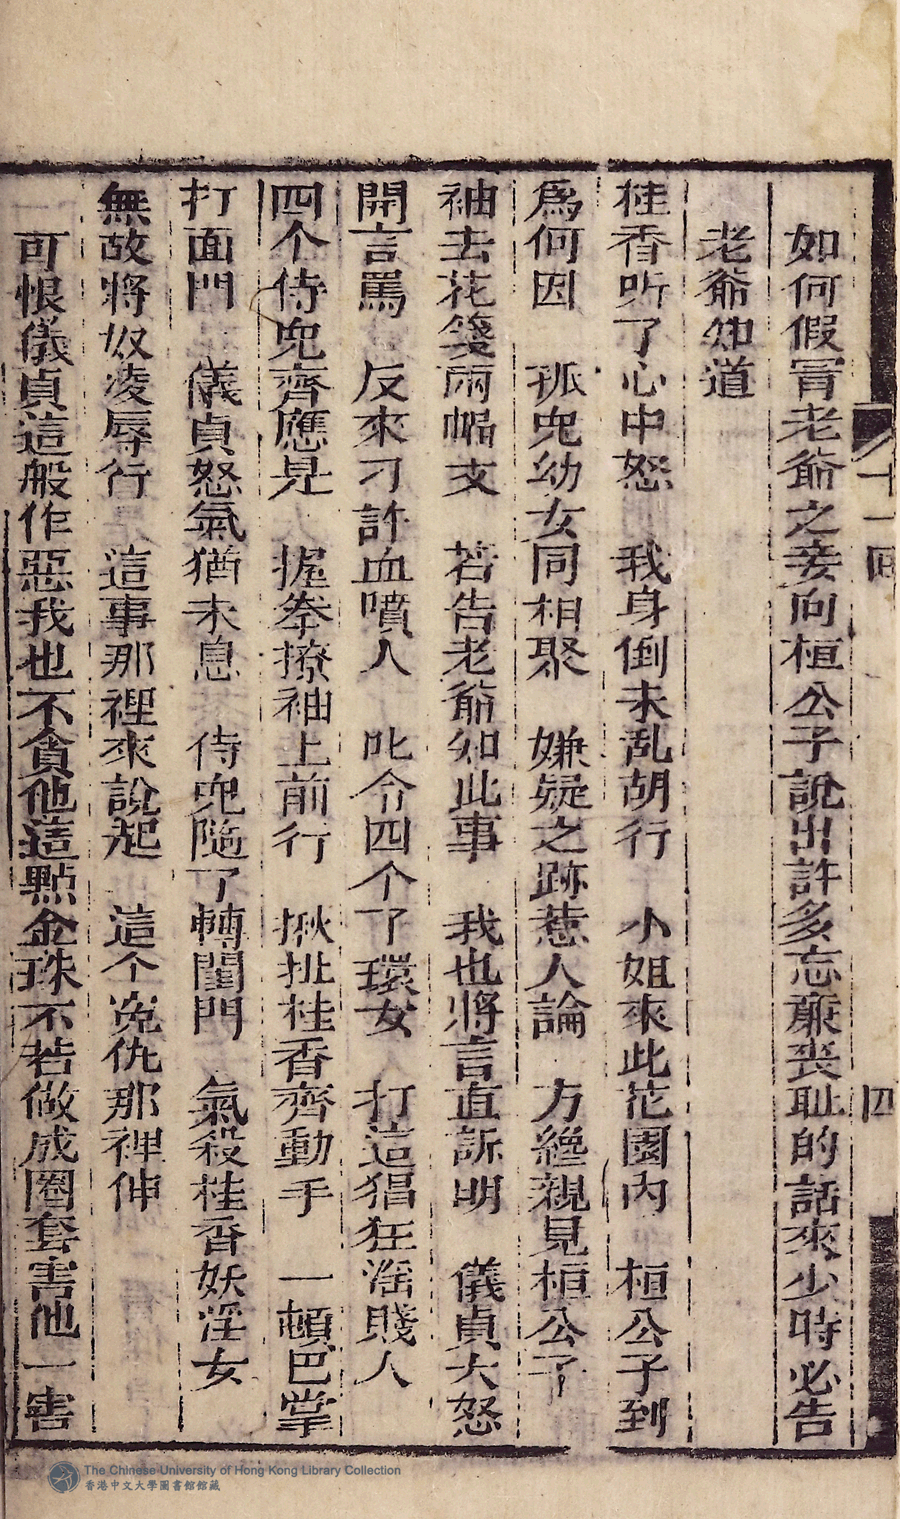 十一回
四
如何假冐老爺之妾向桓公子說出許多忘廉丧耻的話來少時必告
老爺知道
桂香听了心中怒　我身倒未乱胡行　小姐來此花園內　桓公子到
爲何因　孤兒幼女同相聚　嫌疑之跡惹人論　方纔親見桓公子
袖去花箋兩幅支　若告老爺如此事　我也將言直訴明　儀貞大怒
開言罵　反來刁訐血噴人　叱令四个了環女　打這猖狂滛賤人
四个侍兒齊應是　握拳撩袖上前行　揪扯桂香齊動手　一頓巴掌
打面門　儀貞怒氣猶未息　侍兒隨了轉閨門　氣殺桂香妖淫女
無故將奴凌辱行　這事那裡來說起　這个寃仇那裡伸
可恨儀貞這般作惡我也不貪他這點金珠不若做成圈套害他一害
The Chinese University of Hong Kong Library Collection
香港中文大學圖書館館藏